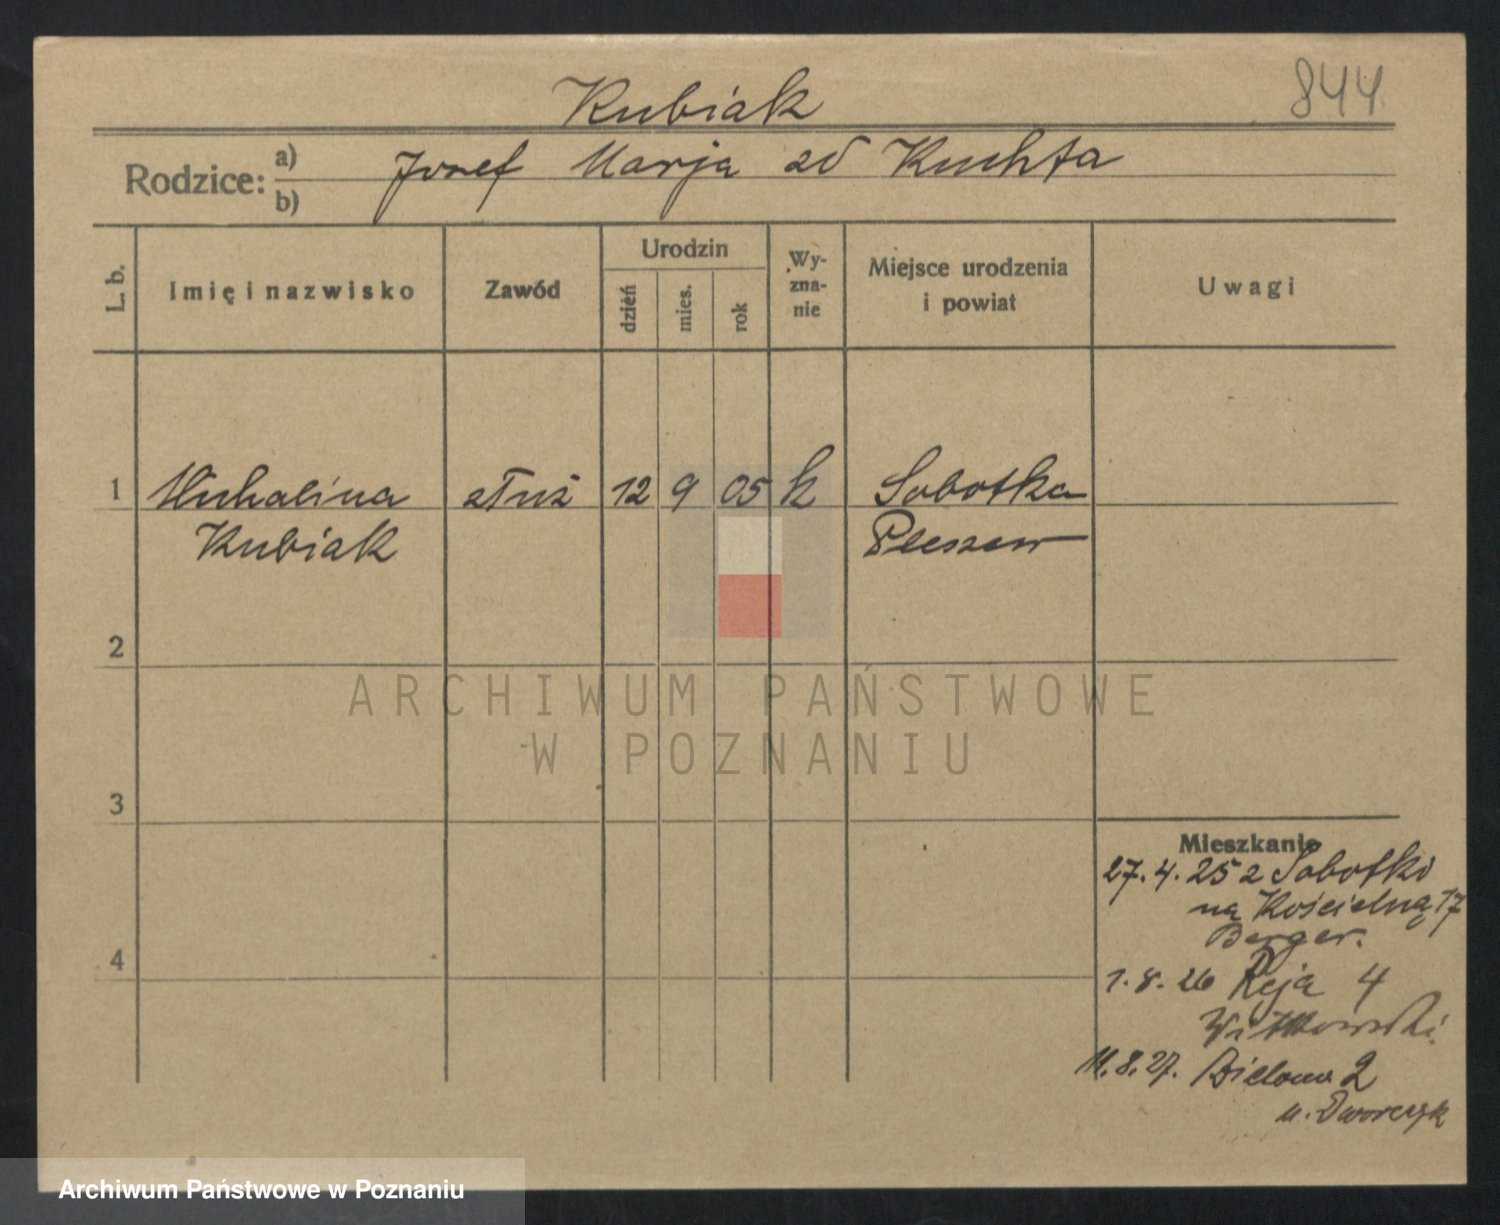 844
Kubiak
Rodzice: a) b) Józef Marja zd Kuchta
L. b.
Imię i nazwisko
Zawód
Urodzin
dzień
mies.
rok
Wy-
zna-
nie
Miejsce urodzenia
i powiat
Uwagi
1 Michalina służ 12 9 05 k Sobotka
Kubiak Pleszew
2
ARCHIWUM PAŃSTWOWE
W POZNANIU
3
Mieszkanie
27.4.25 z Sobotki
na Kościelną 17
Berger.
4
1.8.26 Reja 4
Witkowski.
11.8.27. 2
u. Dworczyk
Archiwum Państwowe w Poznaniu